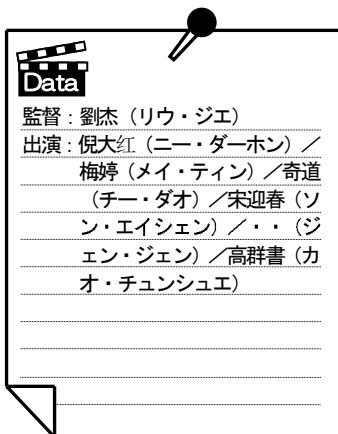 Data
監督：劉杰（リウ・ジエ）
出演：倪大红（ニー・ダーホン）／
梅婷（メイ・ティン）／奇道
（チー・ダオ）／宋迎春（ソ
ン・エイシェン）／・・（ジ
ェン・ジェン）／高群書（カ
オ・チュンシュエ）